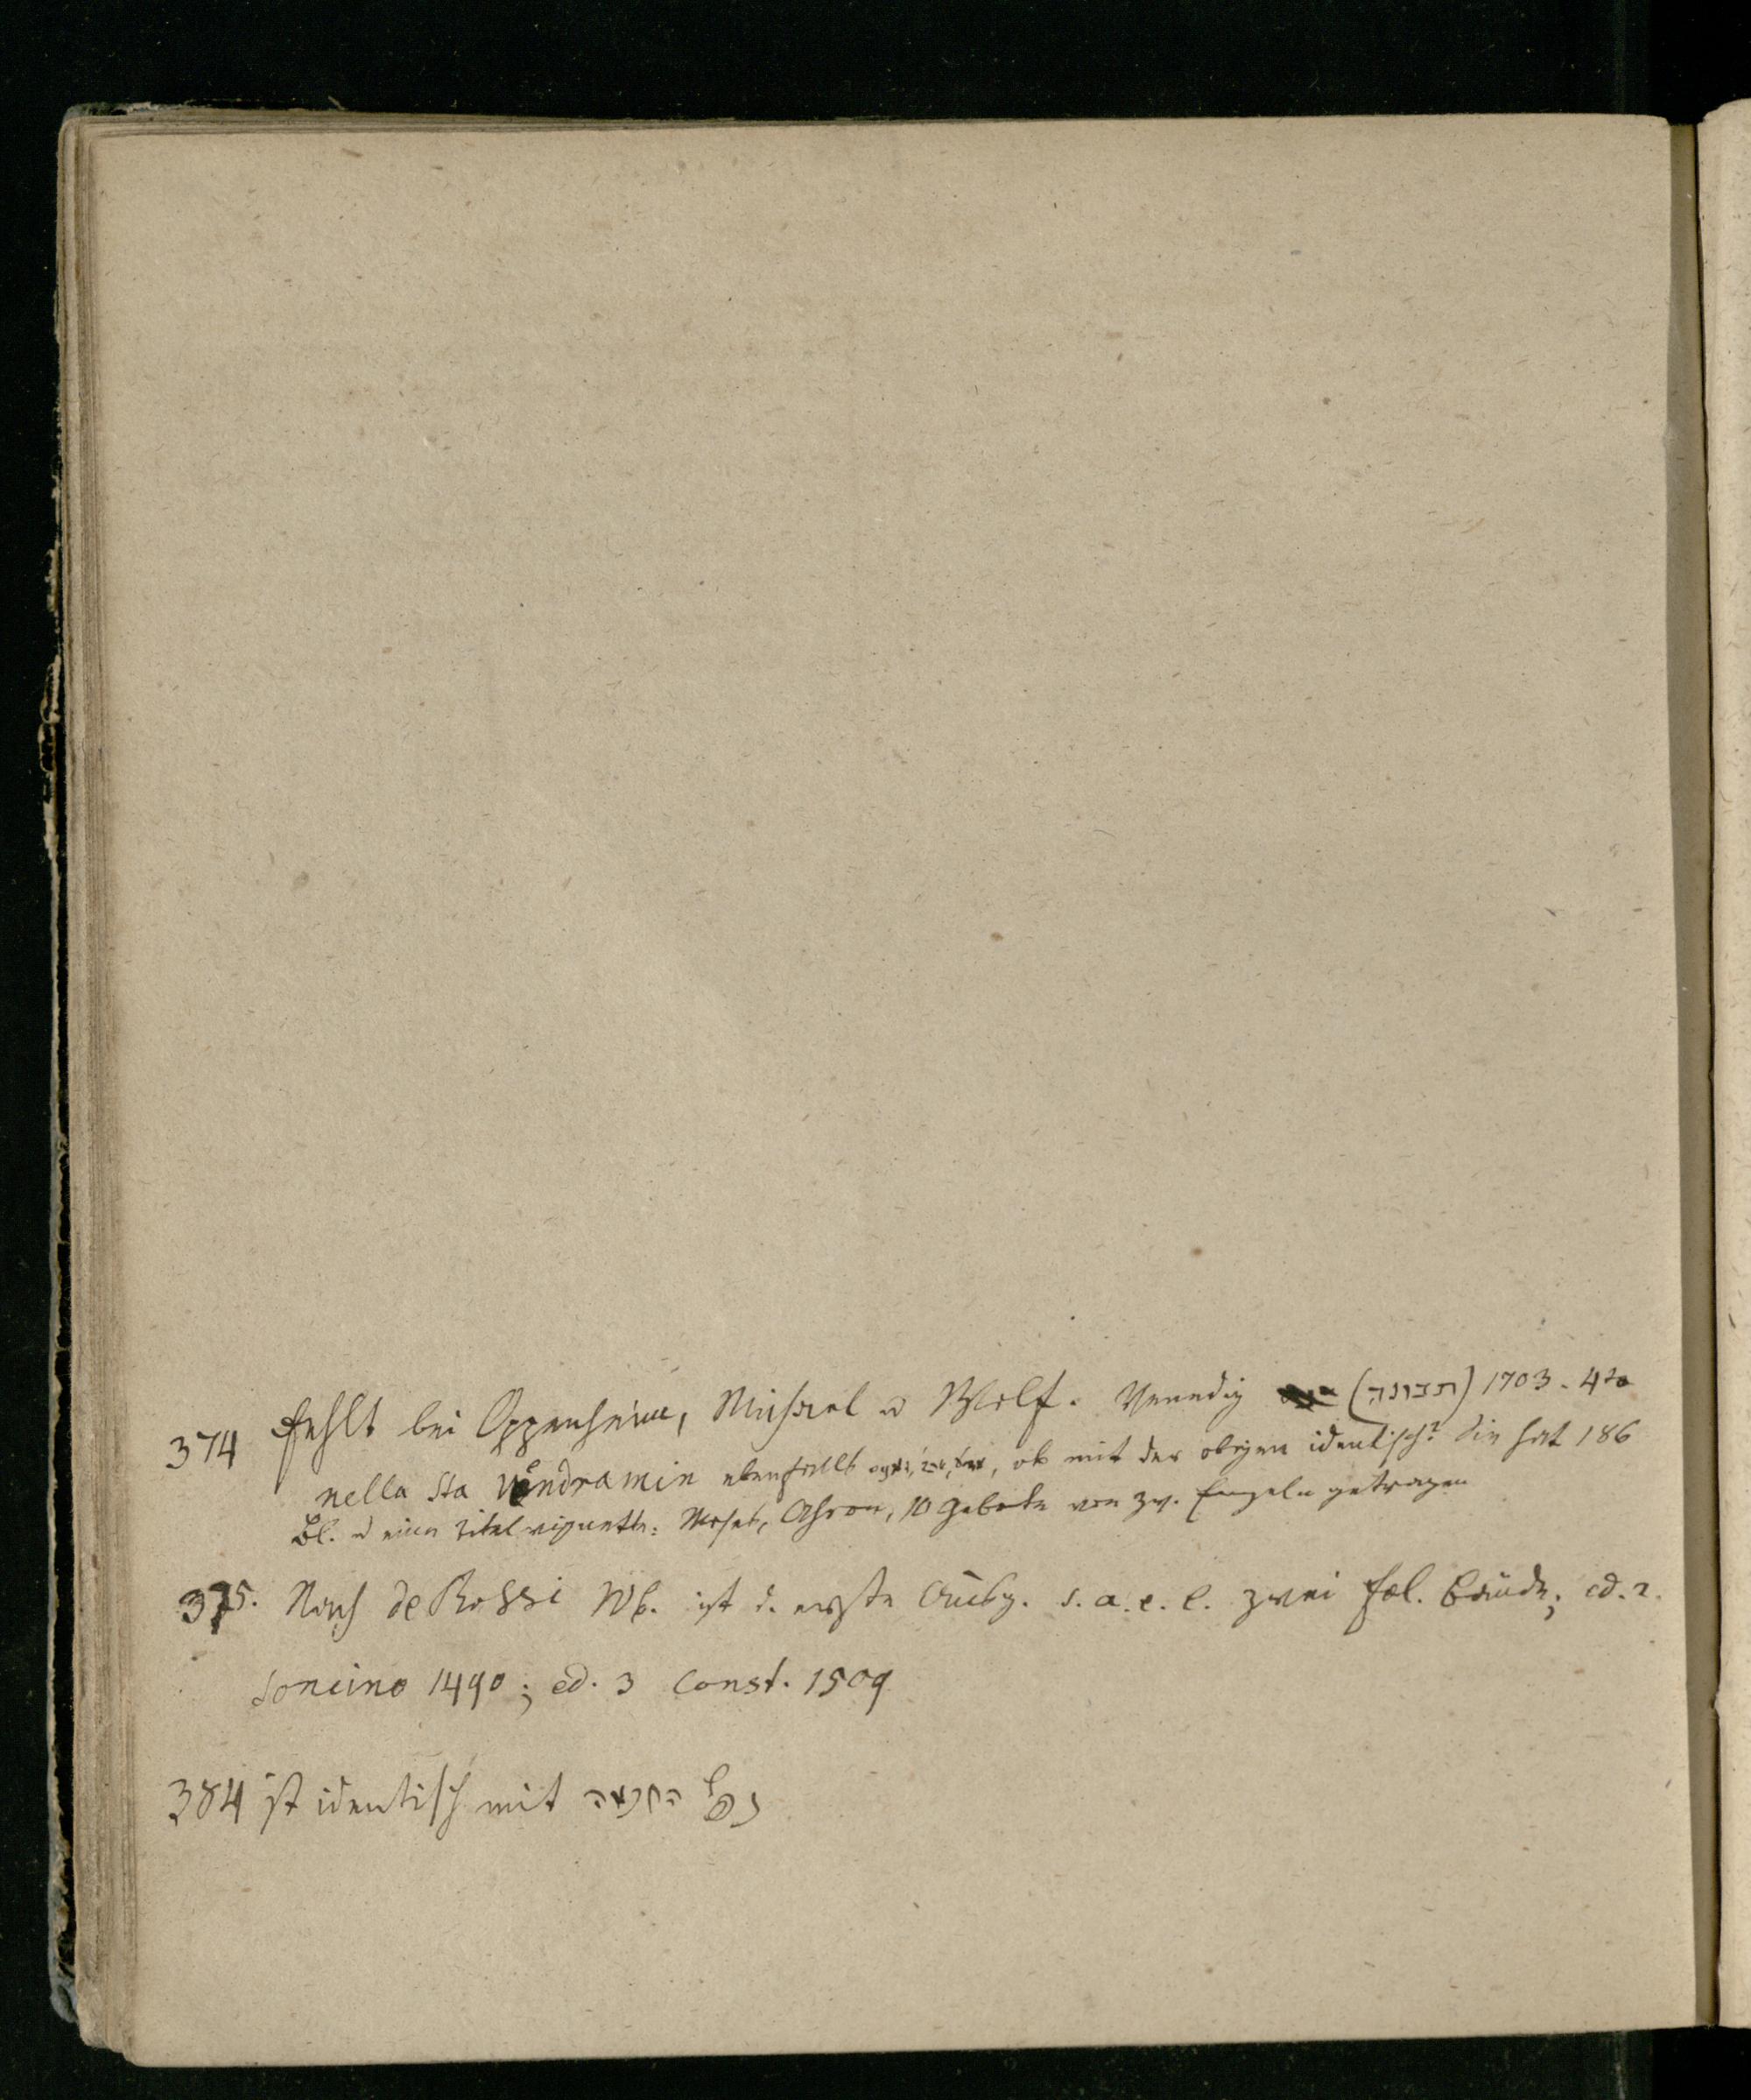 374 fehlt bei Oppenheim, Michael u Wolf. Venedig (תבונה) 1703. 4to
nella Sta Vendramin ebenfalls, ob mit der obigen identisch? Sie hat 186
Bl. u eine Titelvignette: Moses, Ahron, 10 Gebote von zw. Engeln getragen
375. Nach de Rossi Wb. ist d. erste Ausg. s. a. e. l. zwei fol. Bände; ed. 2.
Soncino 1490; ed. 3 Const. 1509
384 ist identisch mit